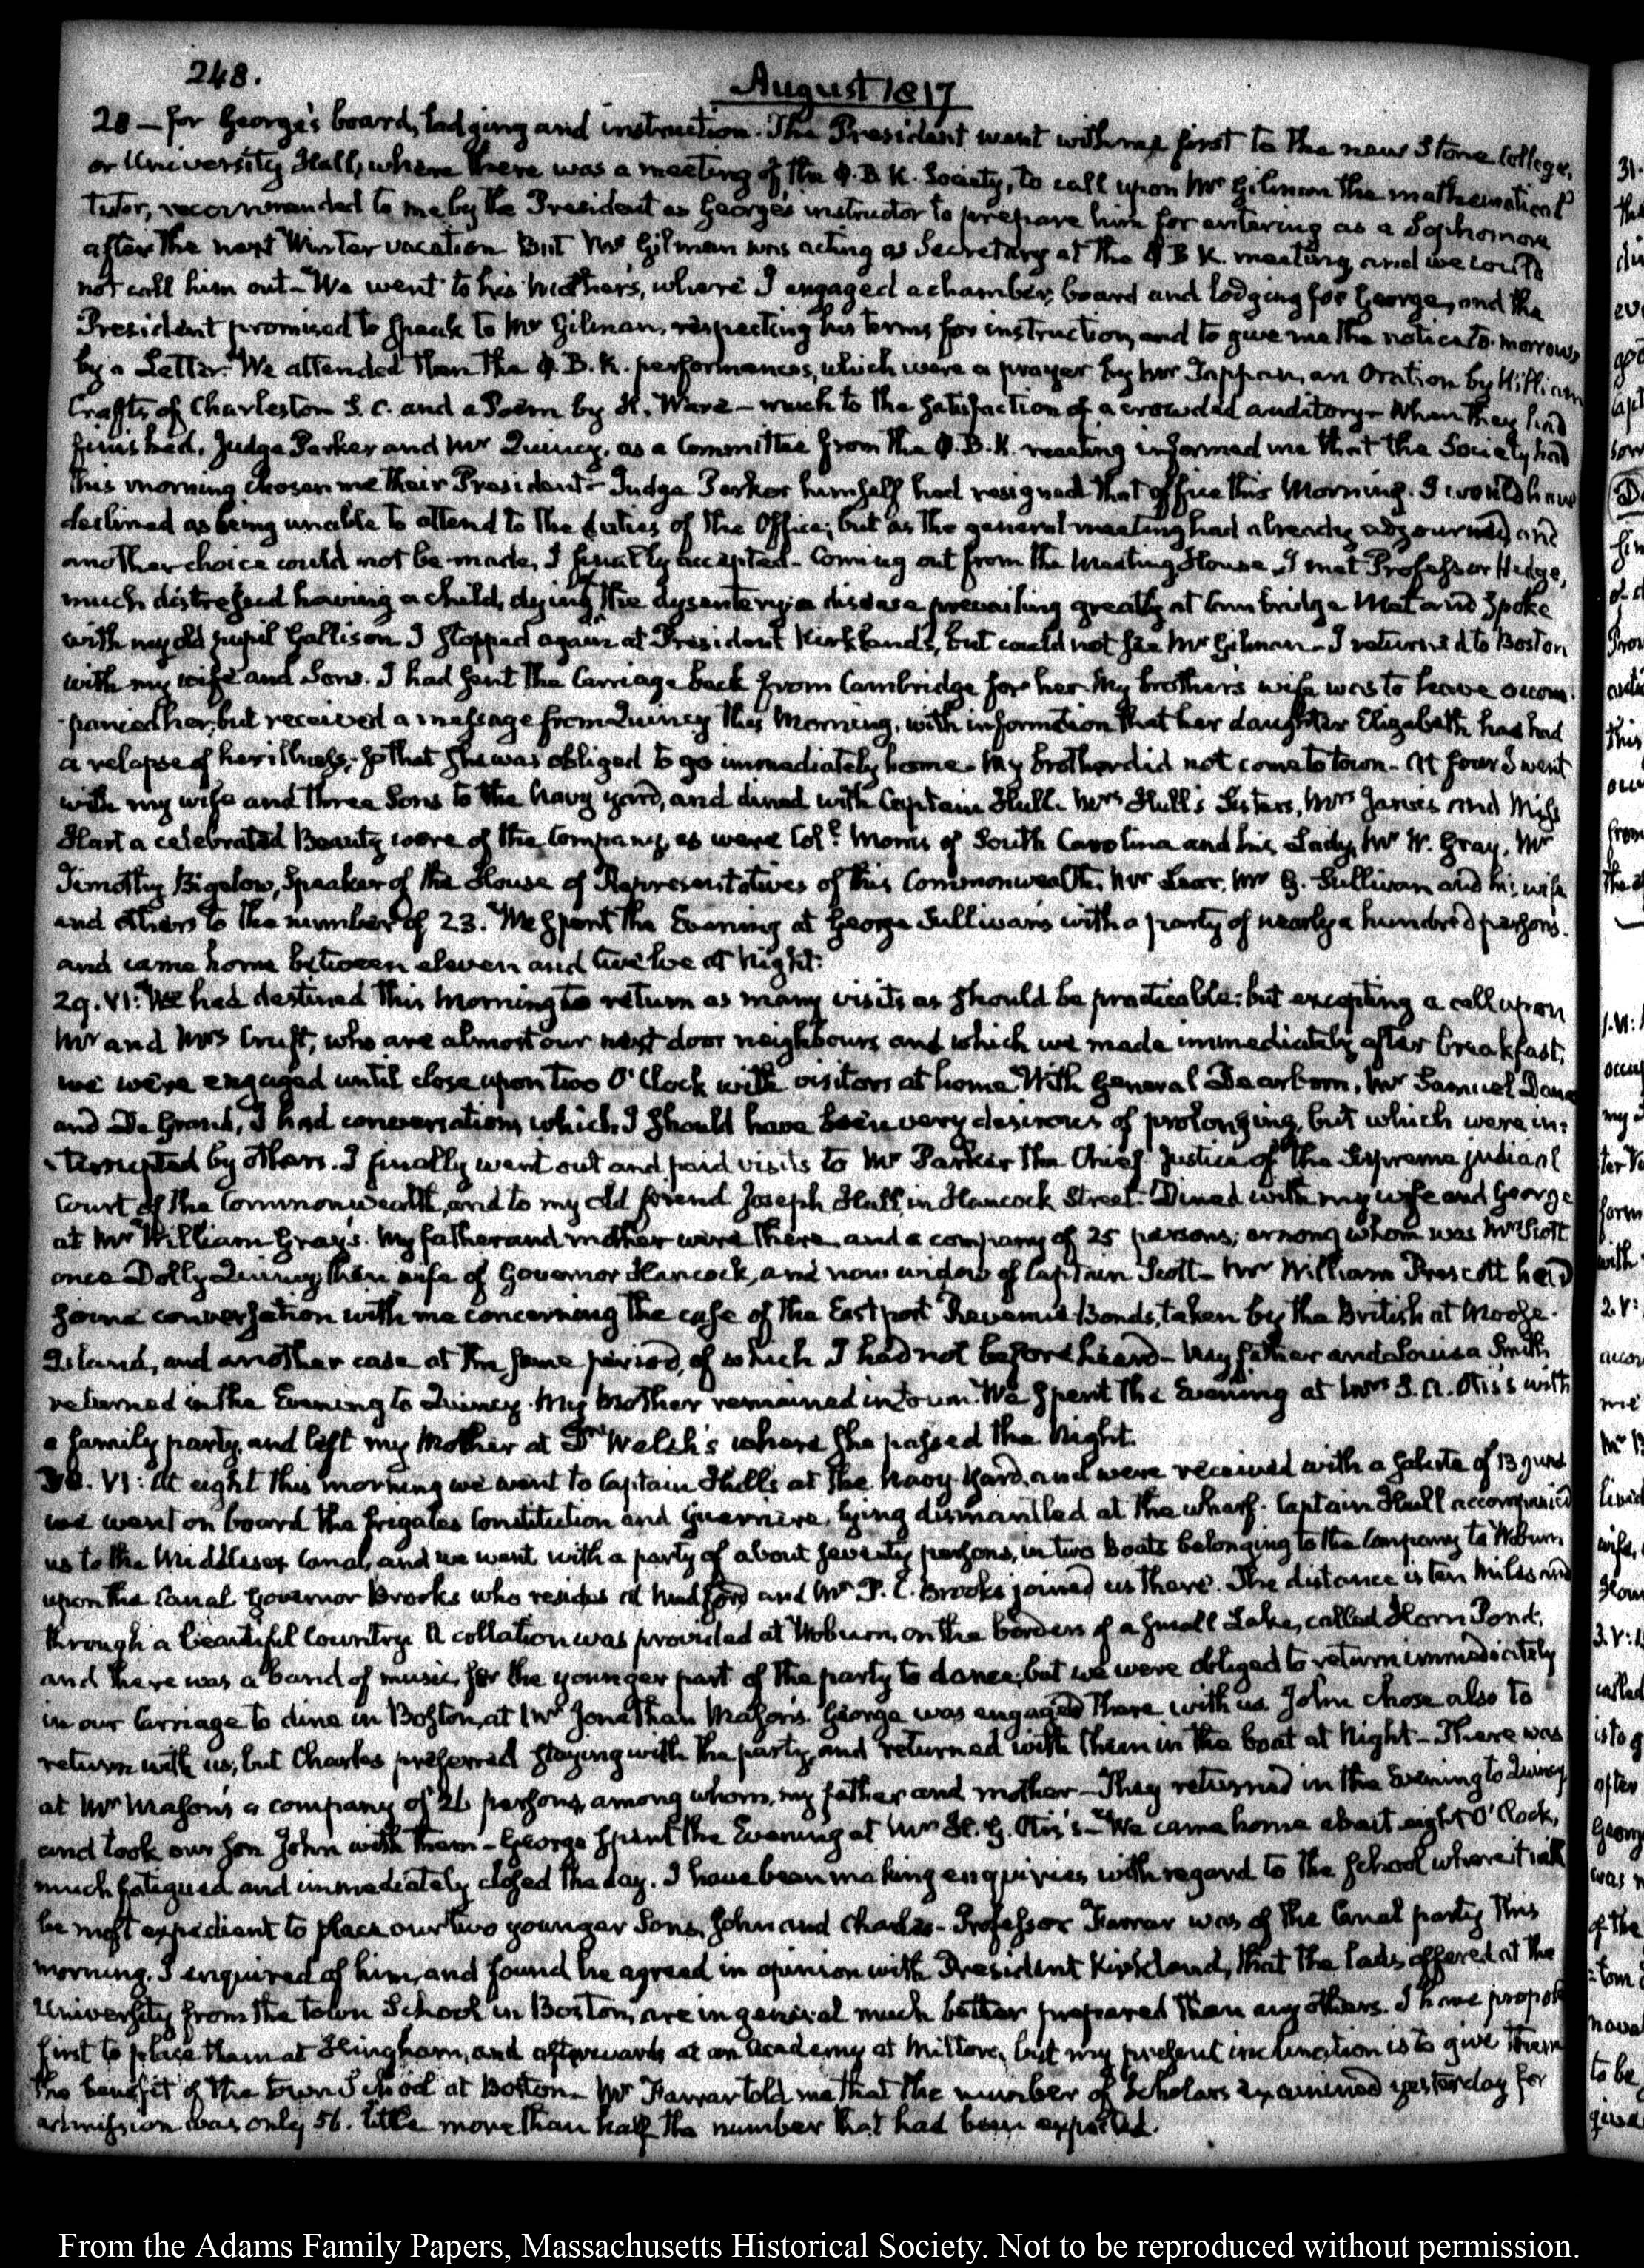 248.
August 1817
28 — for George's board, lodging and instruction. The President went with me first to the new Stone College,
or University Hall, where there was a meeting of the Φ.B.K. Society, to call upon Mr Gilman the mathematical
Tutor, recommended to me by the President as George's instructor to prepare him for entering as a Sophomore
after the next Winter vacation. But Mr Gilman was acting as Secretary at the Φ B K. meeting, and we could
not call him out— We went to his Mother's, where I engaged a chamber, board and lodging for George, and the
President promised to speak to Mr Gilman, respecting his terms for instruction, and to give me the notice to-morrow,
by a Letter. We attended then the Φ.B.K. performances, which were a prayer by Mr Tappan, an Oration by William
Crafts of Charleston S.C. and a Poem by H. Ware— much to the satisfaction of a crowded auditory— When they had
finished, Judge Parker and Mr Quincy, as a Committee from the Φ.B.K. meeting informed me that the Society had
this morning chosen me their President— Judge Parker himself had resigned that office this Morning. I would have
declined as being unable to attend to the duties of the Office; but as the general meeting had already adjourned, and
another choice could not be made, I finally accepted— Coming out from the Meeting House, I met Professor Hedge,
much distressed having a child, dying of the dysentery; a disease prevailing greatly at Cambridge Met and Spoke
with my old pupil Gallison. I stopped again at President Kirkland's, but could not see Mr Gilman— I returned to Boston
with my wife and Sons. I had sent the Carriage back from Cambridge for her. My brother's wife was to have accom-
panied her, but received a message from Quincy this Morning, with information that her daughter Elizabeth had had
a relapse of her illness; so that she was obliged to go immediately home— My brother did not come to town— At four I went
with my wife and three Sons to the Navy yard, and dined with Captain Hull. Mrs Hull's Sisters, Mrs Jarvis and Miss
Hart a celebrated Beauty were of the Company, as were Coll. Morris of South Carolina and his Lady, Mr W. Gray, Mr
Timothy Bigelow, Speaker of the House of Representatives of this Commonwealth, Mr Lear, Mr G. Sullivan and his wife
and others to the number of 23. We spent the Evening at George Sullivan's with a party of nearly a hundred persons.
and came home between eleven and twelve at Night.
29. VI: We had destined this Morning to return as many visits as should be practicable; but excepting a call upon
Mr and Mrs Cruft, who are almost our next door neighbours and which we made immediately after breakfast,
we were engaged until close upon two O'Clock with visitors at home. With General Dearborn, Mr Samuel Dana
and De Grand, I had conversations, which I should have been very desirous of prolonging, but which were in-
terrupted by others. I finally went out and paid visits to Mr Parker the Chief Justice of the Supreme judicial
Court of the Commonwealth, and to my old friend Joseph Hall, in Hancock Street. Dined with my wife and George
at Mr William Gray's. My father and mother were there, and a company of 25 persons; among whom was Mrs Scott
once Dolly Quincy, then wife of Governor Hancock, and now widow of Captain Scott— Mr William Prescott held
some conversation with me concerning the case of the Eastport Revenue Bonds, taken by the British at Moose-
Island, and another case at the same period, of which I had not before heard— My father and Louisa Smith
returned in the Evening to Quincy. My Mother remained in town. We spent the Evening at Mrs S. A. Otis's with
a family party, and left my Mother at Dr Welsh's where she passed the Night.
30. VI: At eight this morning we went to Captain Hull's at the Navy Yard, and were received with a salute of 13 guns
we went on board the frigates Constitution and Guerriere, lying dismantled at the wharf. Captain Hull accompanied
us to the Middlesex Canal, and we went with a party of about seventy persons, in two Boats belonging to the Company to Woburn
upon the Canal. Governor Brooks who resides at Medford and Mr P. C. Brooks joined us there. The distance is ten Miles and
through a beautiful Country. A collation was provided at Woburn, on the borders of a small Lake, called Horn Pond,
and there was a band of music, for the younger part of the party to dance; but we were obliged to return immediately
in our Carriage to dine in Boston, at Mr Jonathan Mason's. George was engaged there with us. John chose also to
return with us; but Charles preferred staying with the party, and returned with them in the boat at Night— There was
at Mr Mason's a company of 26 persons, among whom, my father and mother— They returned in the Evening to Quincy
and took our Son John with them— George spent the Evening at Mr H. G. Otis's— We came home about eight O'Clock,
much fatigued and immediately closed the day. I have been making enquiries with regard to the School where it will
be most expedient to place our two younger Sons, John and Charles— Professor Farrar was of the Canal party this
morning. I enquired of him, and found he agreed in opinion with President Kirkland, that the lads offered at the
University from the town School in Boston, are in general much better prepared than any others. I have propos
first to place them at Hingham, and afterwards at an Academy at Milton, but my present inclination is to give them
the benefit of the town School at Boston— Mr Farrar told me that the number of Scholars examined yesterday for
admission was only 56. little more than half the number that had been expected.
From the Adams Family Papers, Massachusetts Historical Society. Not to be reproduced without permission.